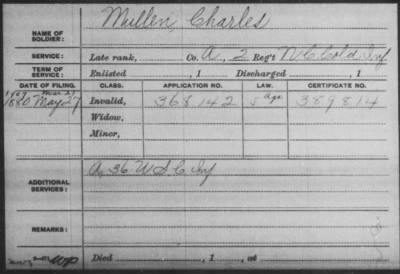 NAME OF SOLDIER: Mullen, Charles
SERVICE: Late rank, Co. A, 2 Reg't N.C. Cold. Inf
TERM OF SERVICE: Enlisted , 1 Discharged , 1
DATE OF FILING. CLASS. APPLICATION NO. LAW. CERTIFICATE NO.
1880 May 27 Invalid, 368142 389814
Widow,
Minor,
ADDITIONAL SERVICES: A, 36 U S C Inf
REMARKS:
Died , 1 , at